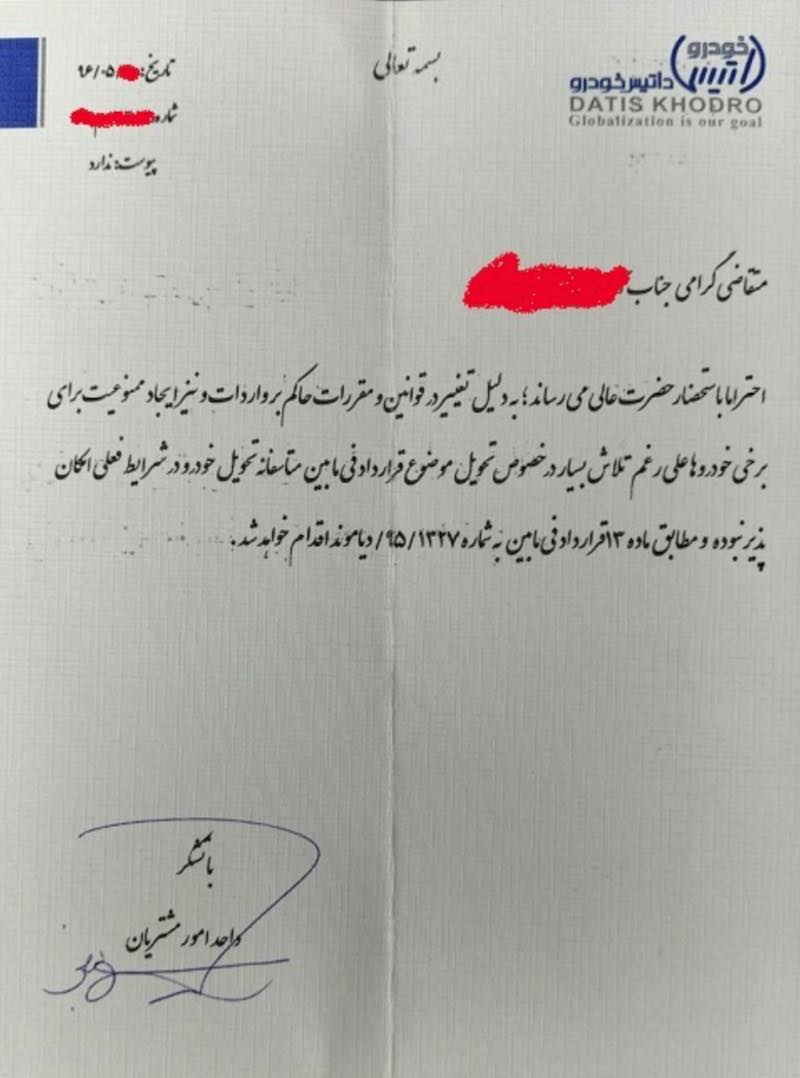 بسمه تعالی
خودرو
داتیس خودرو
DATIS KHODRO
Globalization is our goal
تاریخ: ۹۶/۰۵/
شماره
پیوست: ندارد
متقاضی گرامی جناب
احتراما باستحضار حضرت عالی می رساند؛ به دلیل تغییر در قوانین و مقررات حاکم بر واردات و نیز ایجاد ممنوعیت برای
برخی خودروها علی رغم تلاش بسیار در خصوص تحویل موضوع قرارداد فی مابین متاسفانه تحویل خودرو در شرایط فعلی امکان
پذیر نبوده و مطابق ماده ۱۳ قرارداد فی مابین به شماره ۹۵/۱۳۲۷/ دیاموند اقدام خواهد شد.
باتشکر
واحد امور مشتریان